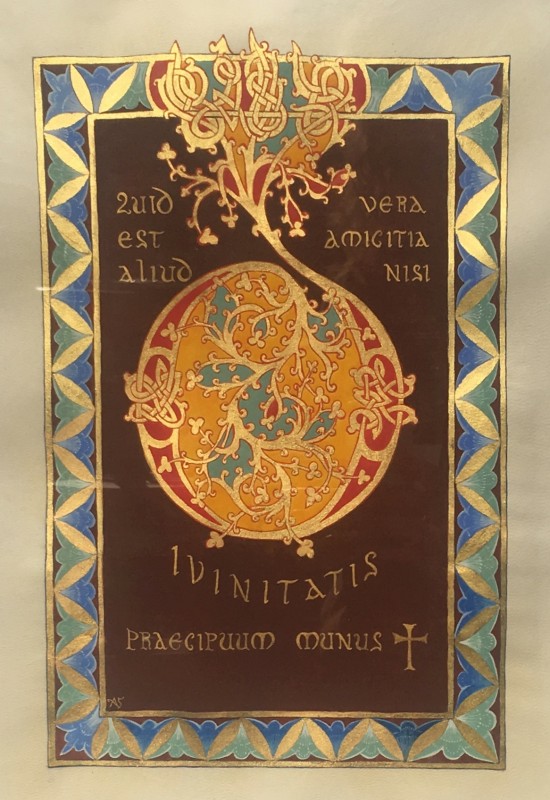 QUID
EST
ALIUD
VERA
AMICITIA
NISI
DIVINITATIS
PRAECIPUUM MUNUS